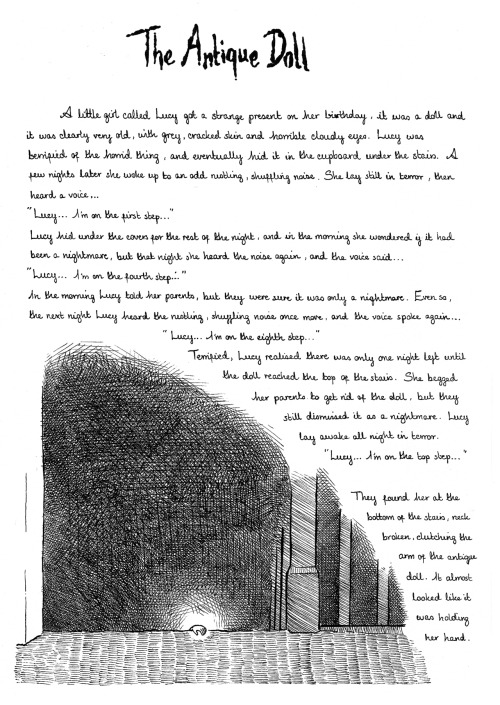 The Antique Doll
A little girl called Lucy got a strange present on her birthday, it was a doll and
it was clearly very old, with grey, cracked skin and horrible cloudy eyes. Lucy was
terrified of the horrid thing, and eventually hid it in the cupboard under the stairs. A
few nights later she woke up to an odd rustling, shuffling noise. She lay still in terror, then
heard a voice...
"Lucy... I'm on the first step..."
Lucy hid under the covers for the rest of the night, and in the morning she wondered if it had
been a nightmare, but that night she heard the noise again, and the voice said...
"Lucy... I'm on the fourth step..."
In the morning Lucy told her parents, but they were sure it was only a nightmare. Even so,
the next night Lucy heard the rustling, shuffling noise once more, and the voice spoke again...
"Lucy... I'm on the eighth step..."
Terrified, Lucy realised there was only one night left until
the doll reached the top of the stairs. She begged
her parents to get rid of the doll, but they
still dismissed it as a nightmare. Lucy
lay awake all night in terror.
"Lucy... I'm on the top step..."
They found her at the
bottom of the stairs, neck
broken, clutching the
arm of the antique
doll. It almost
looked like it
was holding
her hand.